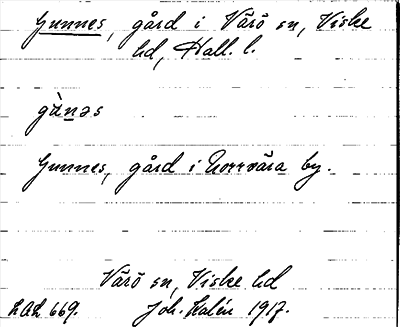 Gunnes, gård i Värö sn, Viske
hd, Hall. l.
gùnəs
Gunnes, gård i Norrvära by.
Värö sn, Viske hd
LAL 669. Joh. Kalén 1917.